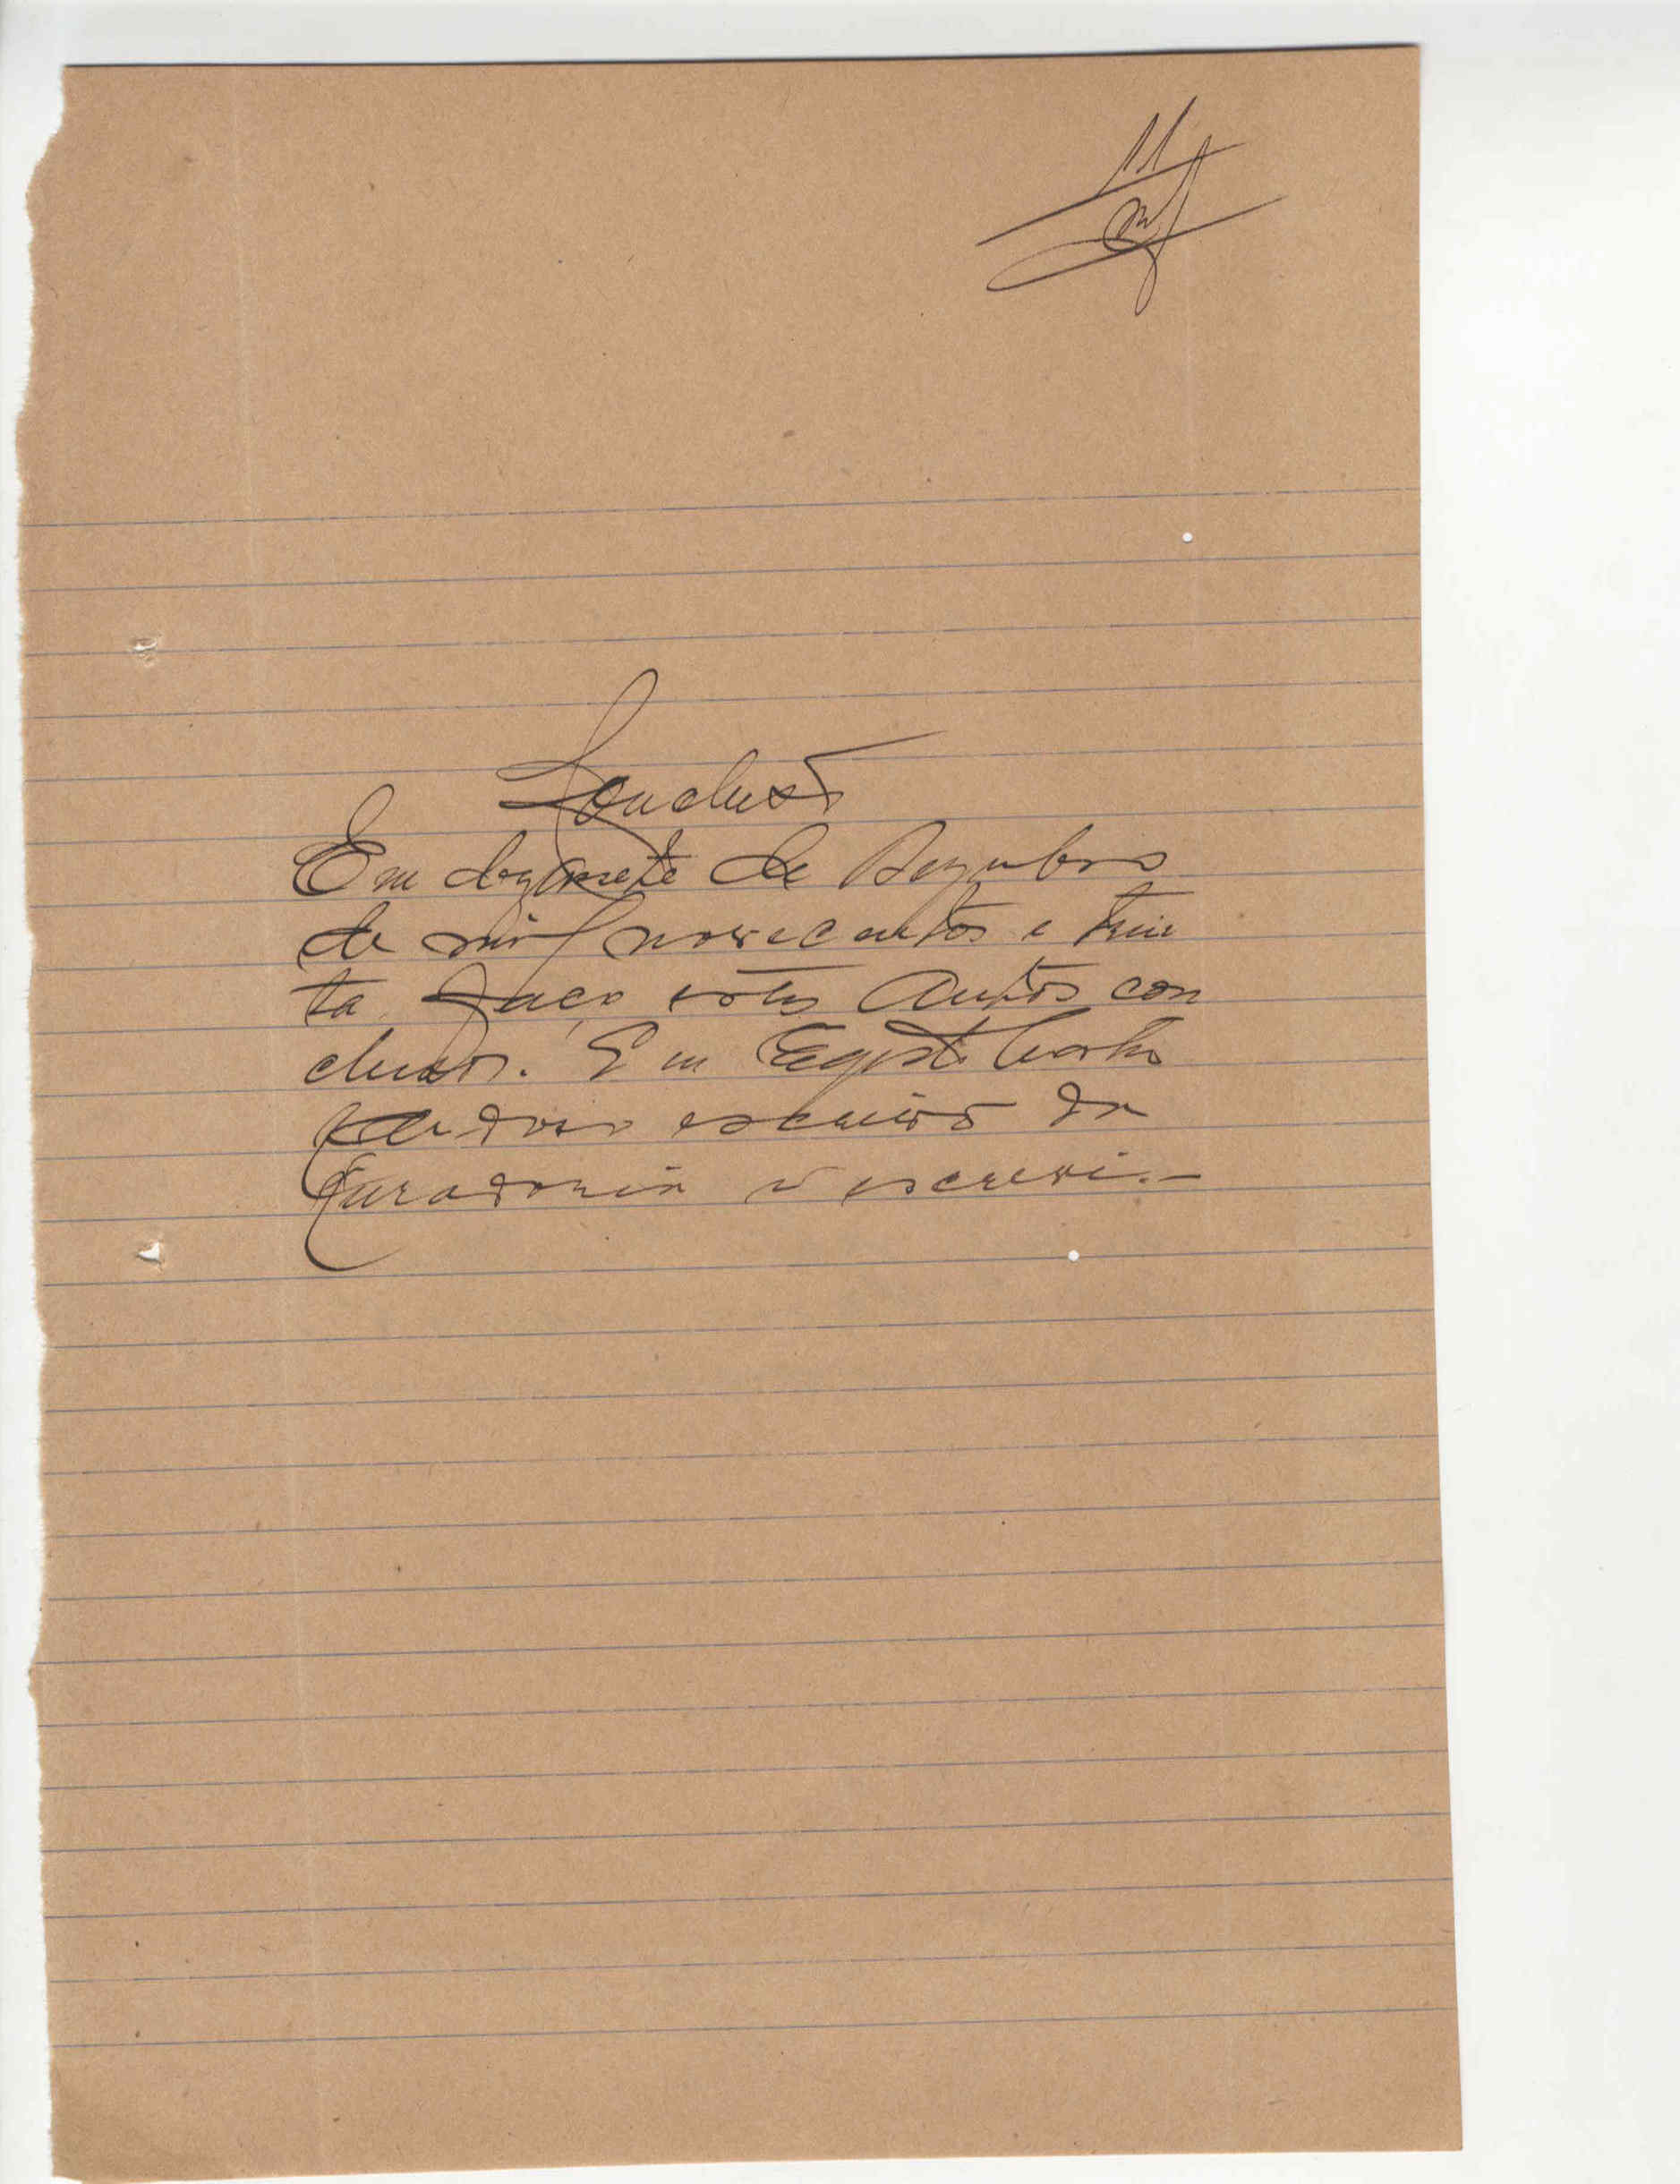 11
Conclusão
Em dezasete de Dezembro
de mil novecentos e trin
ta faço estes Autos con
clusos. Eu
Cardoso escrivão da
Curadoria o escrevi.-